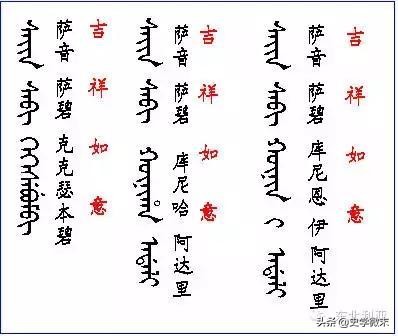 ᠰᠠᡳᠨ ᠰᠠᠪᡳ ᡴᡝᡴᠰᡝᠪᡠᠮᠪᡳ
萨音 萨碧 克克瑟本碧
吉祥如意
ᠰᠠᡳᠨ ᠰᠠᠪᡳ ᡤᡡᠨᡳᡥᠠ ᠠᡩᠠᠯᡳ
萨音 萨碧 库尼哈 阿达里
吉祥如意
ᠰᠠᡳᠨ ᠰᠠᠪᡳ ᡤᡡᠨᡳᠨ ᡳ ᠠᡩᠠᠯᡳ
萨音 萨碧 库尼恩 伊 阿达里
吉祥如意
头条 @史学微末